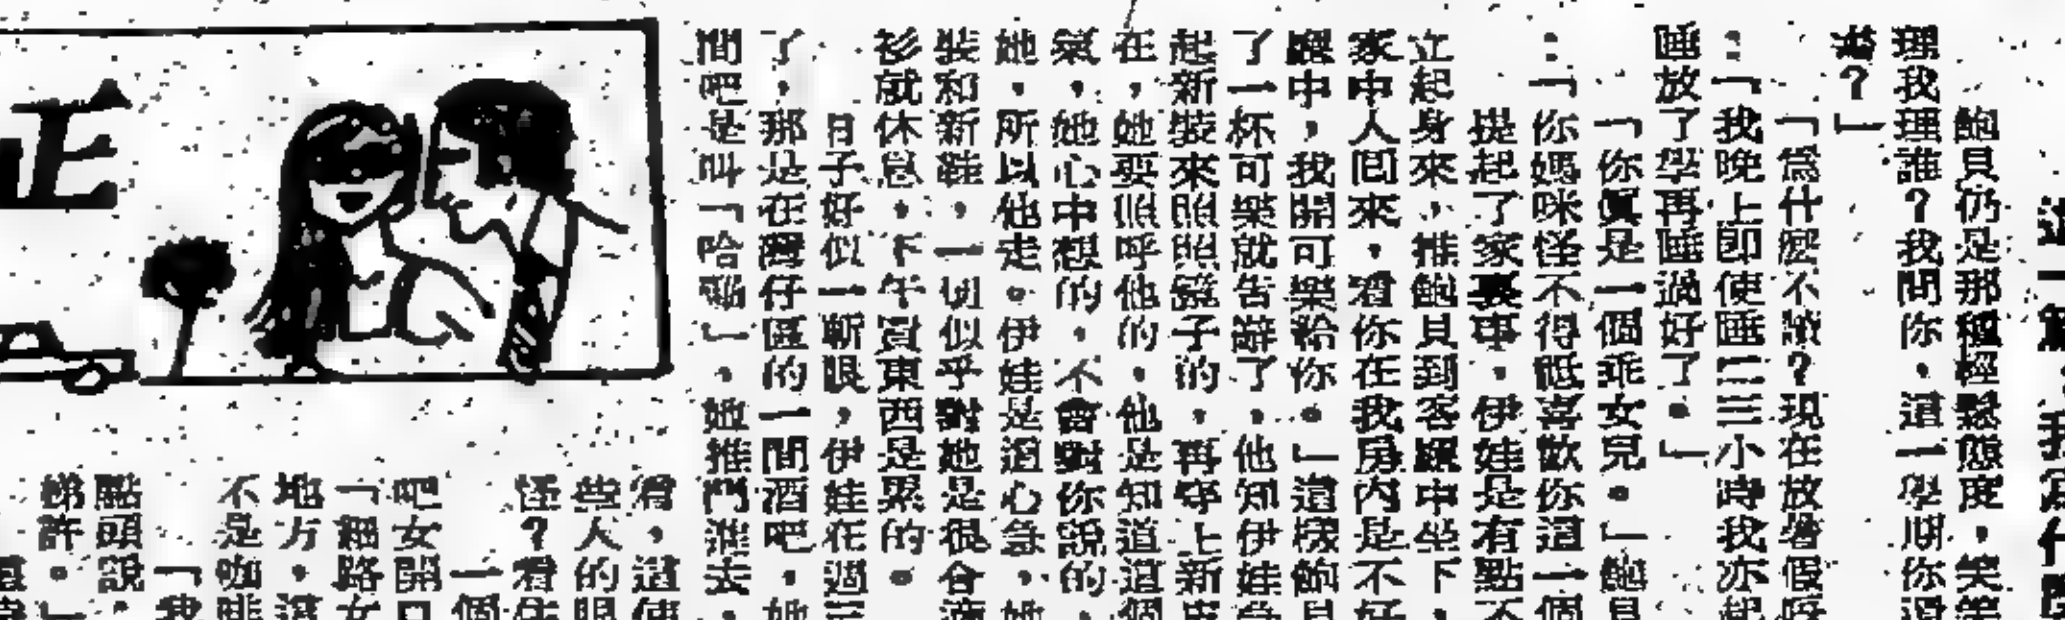 這一篇，我寫什
鮑貝仍是那種輕鬆態度，笑笑
理我理誰？我問你，這一學期你
？」
「為什麽不讀？現在放暑假呀
：「我晚上即使睡二三小時我亦起
睡放了學再睡過好了。」
「你眞是一個乖女兒。」鮑貝
：「你媽咪怪不得祗喜歡你這一個
提起了家裏事，伊娃是有點不
立起身來，推鮑貝到客廳中坐下，
家中人囘來，看你在我房內是不好
廳中，我開可樂給你。」這樣鮑貝
了一杯可樂就告辭了，他知伊娃急
起新裝來照照鏡子的，再穿上新皮
在，她要照呼他的，他是知道這個
氣，她心中想的，不會對你說的，
她，所以他走。伊娃是過心急，她
裝和新鞋，一切似乎對她是很合適
衫就休息，下午買東西是累的。
日子好似一斬眼，伊娃在週三
了，那是在灣仔區的一間酒吧，她
間吧是叫「哈」，她推門進去，
看，這使
些人的眼
怪？看伊
一個
吧女開口
「細路女
地方，這
不是咖啡
「我
點頭說：
梯許。」
正